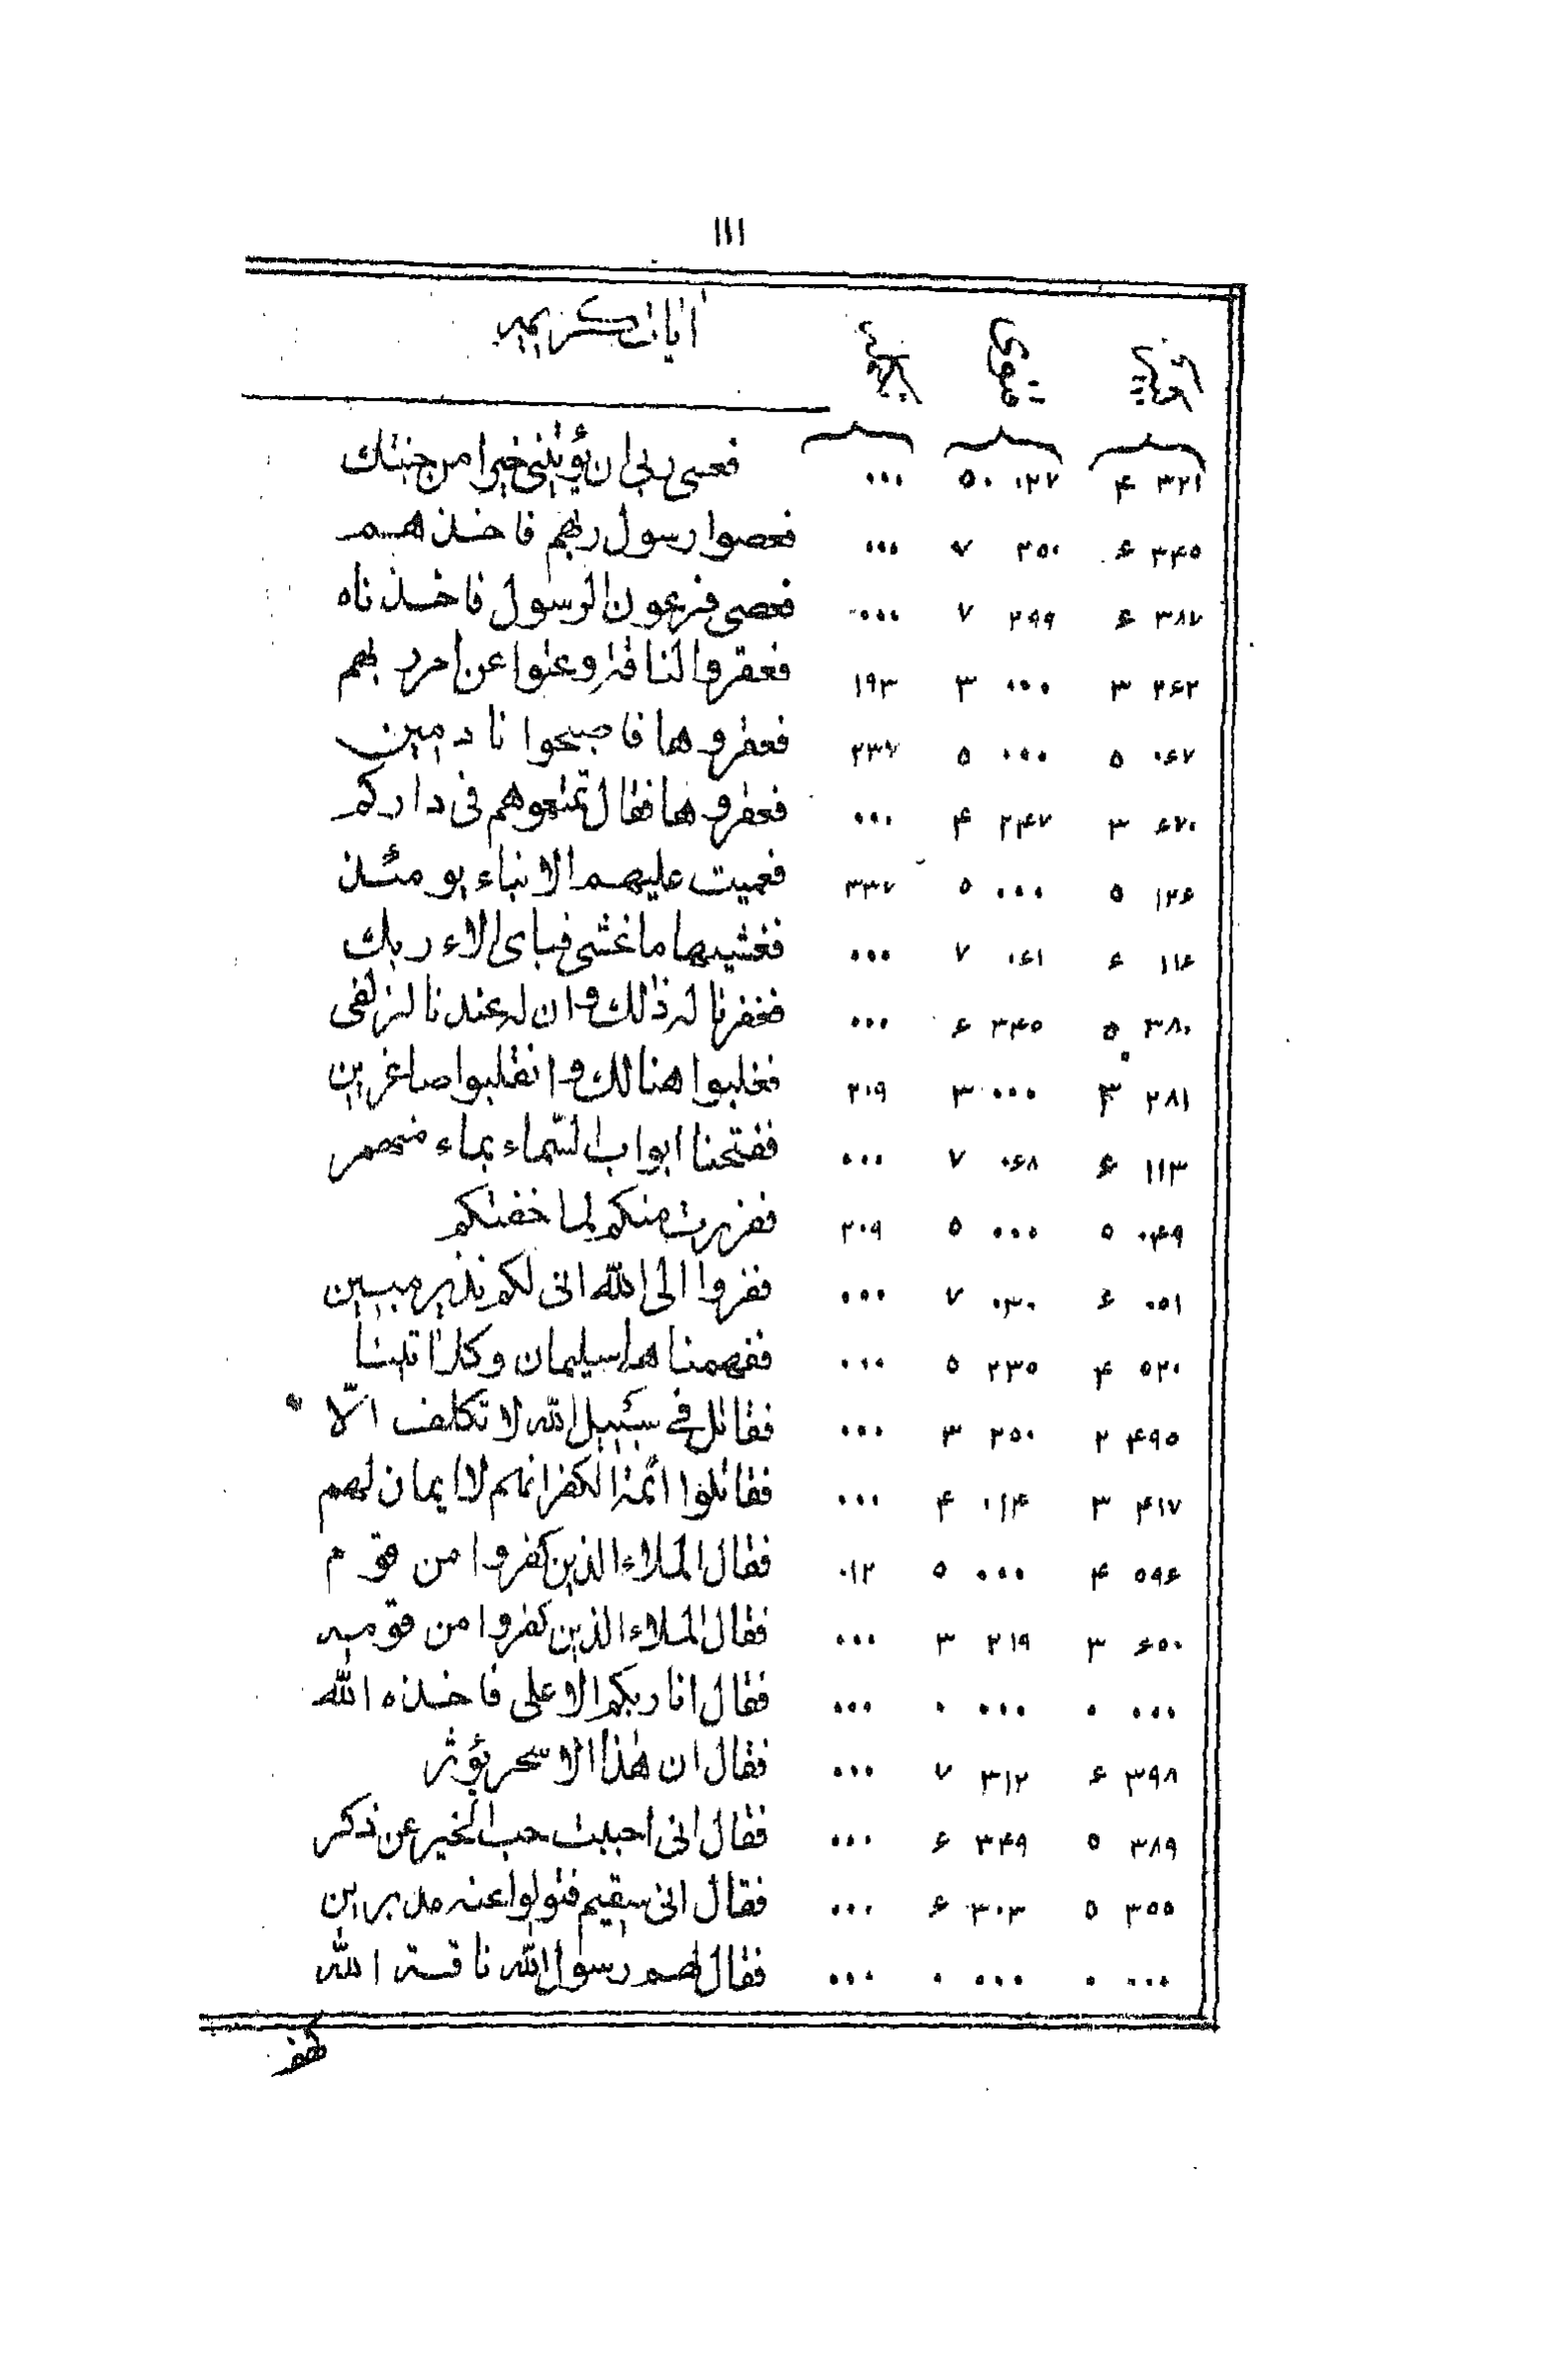 ١١١
آيات كريمه
۳۲۱ ۴ ۱۲۷. ۵ ... فعسى ربى ان يؤتينى خيرا من جنتك
۳۴۵ ۶ ۲۵۰ ۷ ... فعصوا رسول ربهم فاخذهم
۳۸۷ ۶ ۲۹۹ ۷ ... فعصى فرعون الرسول فاخذناه
۲۶۲ ۳ ... ۳ ۱۹۳ فعقروا الناقة وعتوا عن امر ربهم
۰۶۷ ۵ ... ۵ ۲۳۷ فعقروها فاصبحوا نادمين
۶۷۰ ۳ ۲۴۷ ۴ ... فعقروها فقال تمتعوهم فى داركم
۱۲۶ ۵ ... ۵ ۳۳۷ فعميت عليهم الانباء يومئذ
۱۱۶ ۶ ۰۶۱ ۷ ... فغشيها ما غشى فباى الاء ربك
۳۸۰ ۵ ۳۴۵ ۶ ... فغفرنا له ذلك وان له عندنا لزلفى
۲۸۱ ۳ ... ۳ ۲۰۹ فغلبوا هنالك وانقلبوا صاغرين
۱۱۳ ۶ ۰۶۸ ۷ ... ففتحنا ابواب السّماء بماء منهمر
۰۴۹ ۵ ... ۵ ۲۰۹ ففررت منكم لما خفتكم
۰۵۱ ۶ ۰۳۰ ۷ ... ففروا الى الله انى لكم نذير مبين
۵۲۰ ۴ ۲۳۵ ۵ ... ففهمناها سليمان وكلا اتينا
۴۹۵ ۲ ۲۵۰ ۳ ... فقاتل فى سبيل الله لا تكلف الّا
۴۱۷ ۳ ۰۱۴ ۴ ... فقاتلوا ائمة الكفر انهم لا ايمان لهم
۵۹۶ ۴ ... ۵ ۰۱۲ فقال الملاء الذين كفروا من قوم
۶۵۰ ۳ ۲۱۹ ۳ ... فقال الملاء الذين كفروا من قومه
... ۰ ... ۰ ... فقال انا ربكم الاعلى فاخذه الله
۳۹۸ ۶ ۳۱۲ ۷ ... فقال ان هذا الا سحر يؤثر
۳۸۹ ۵ ۳۴۹ ۶ ... فقال انى احببت حب الخير عن ذكر
۳۵۵ ۵ ۳۰۳ ۶ ... فقال انى سقيم فتولوا عنه مدبرين
... ۰ ... ۰ ... فقال لهم رسول الله ناقة الله